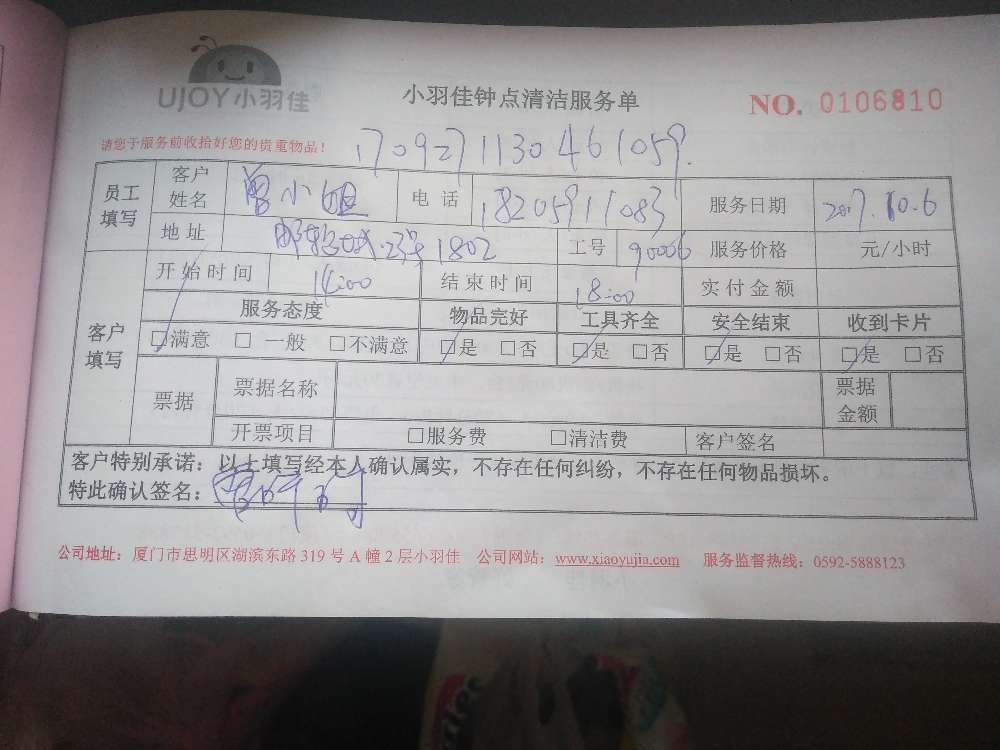 UJOY小羽佳
小羽佳钟点清洁服务单
NO. 0106810
请您于服务前收拾好您的贵重物品!
1709271130461059
员工填写 客户姓名 曾小姐 电话 18205911083 服务日期 2017.10.6
地址 23号1802 工号 90006 服务价格 元/小时
客户填写 开始时间 14:00 结束时间 18:00 实付金额
服务态度 物品完好 工具齐全 安全结束 收到卡片
☑满意 □一般 □不满意 ☑是 □否 ☑是 □否 ☑是 □否 ☑是 □否
票据 票据名称 票据金额
开票项目 □服务费 □清洁费 客户签名
客户特别承诺:以上填写经本人确认属实,不存在任何纠纷,不存在任何物品损坏。
特此确认签名:
公司地址:厦门市思明区湖滨东路 319 号 A 幢 2 层小羽佳 公司网站:www.xiaoyujia.com 服务监督热线:0592-5888123